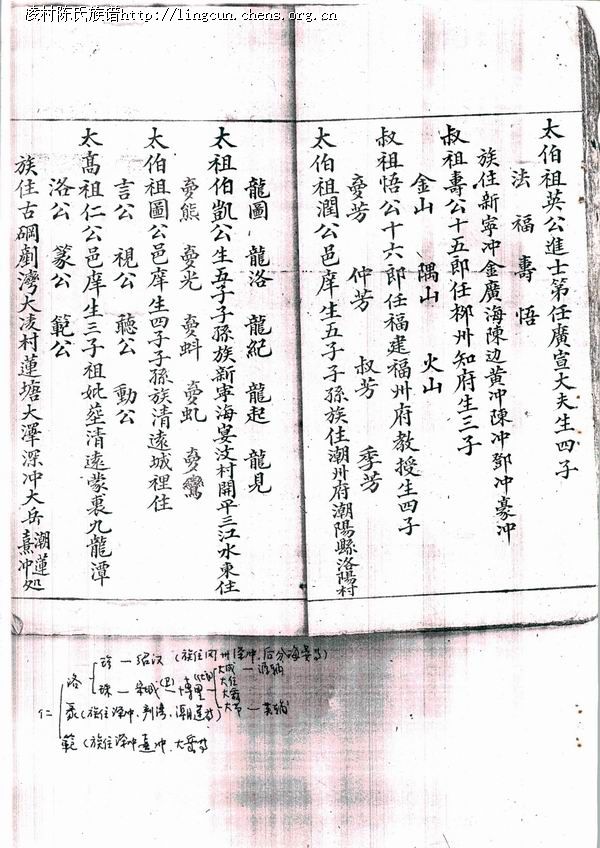 凌村陈氏族谱http://lingcun.chens.org.cn
太伯祖英公進士第任廣宣大夫生四子
法 福 壽 悟
族住新寧冲金廣海陳边黄冲陳冲鄧冲豪冲
叔祖壽公十五郎任柳州知府生三子
金山 隅山 火山
叔祖悟公十六郎任福建福州府教授生四子
夢芳 仲芳 叔芳 季芳
太伯祖潤公邑庠生五子子孫族住潮州府潮陽縣洛陽村
龍圖 龍洛 龍紀 龍起 龍見
太祖伯凱公生五子子孫族新寧海宴汶村開平三江水東住
夢熊 夢光 夢蚪 夢虬 夢鸞
太伯祖圖公邑庠生四子子孫族清遠城裡住
言公 視公 聽公 動公
太高祖仁公邑庠生三子祖妣葬清遠蒙裏九龍潭
洛公 篆公 範公
族住古岡劏灣大凌村蓮塘大澤深冲大岳潮蓮熹冲处
珍 — 紹汉 (族住冈州深冲,后分海晏等)
洛
珠 — 宗 — 博里
大成 — 源
大任
大 — 英
仁
篆 (族住深冲、潮蓮等)
範 (族住深冲熹冲、大岳等)